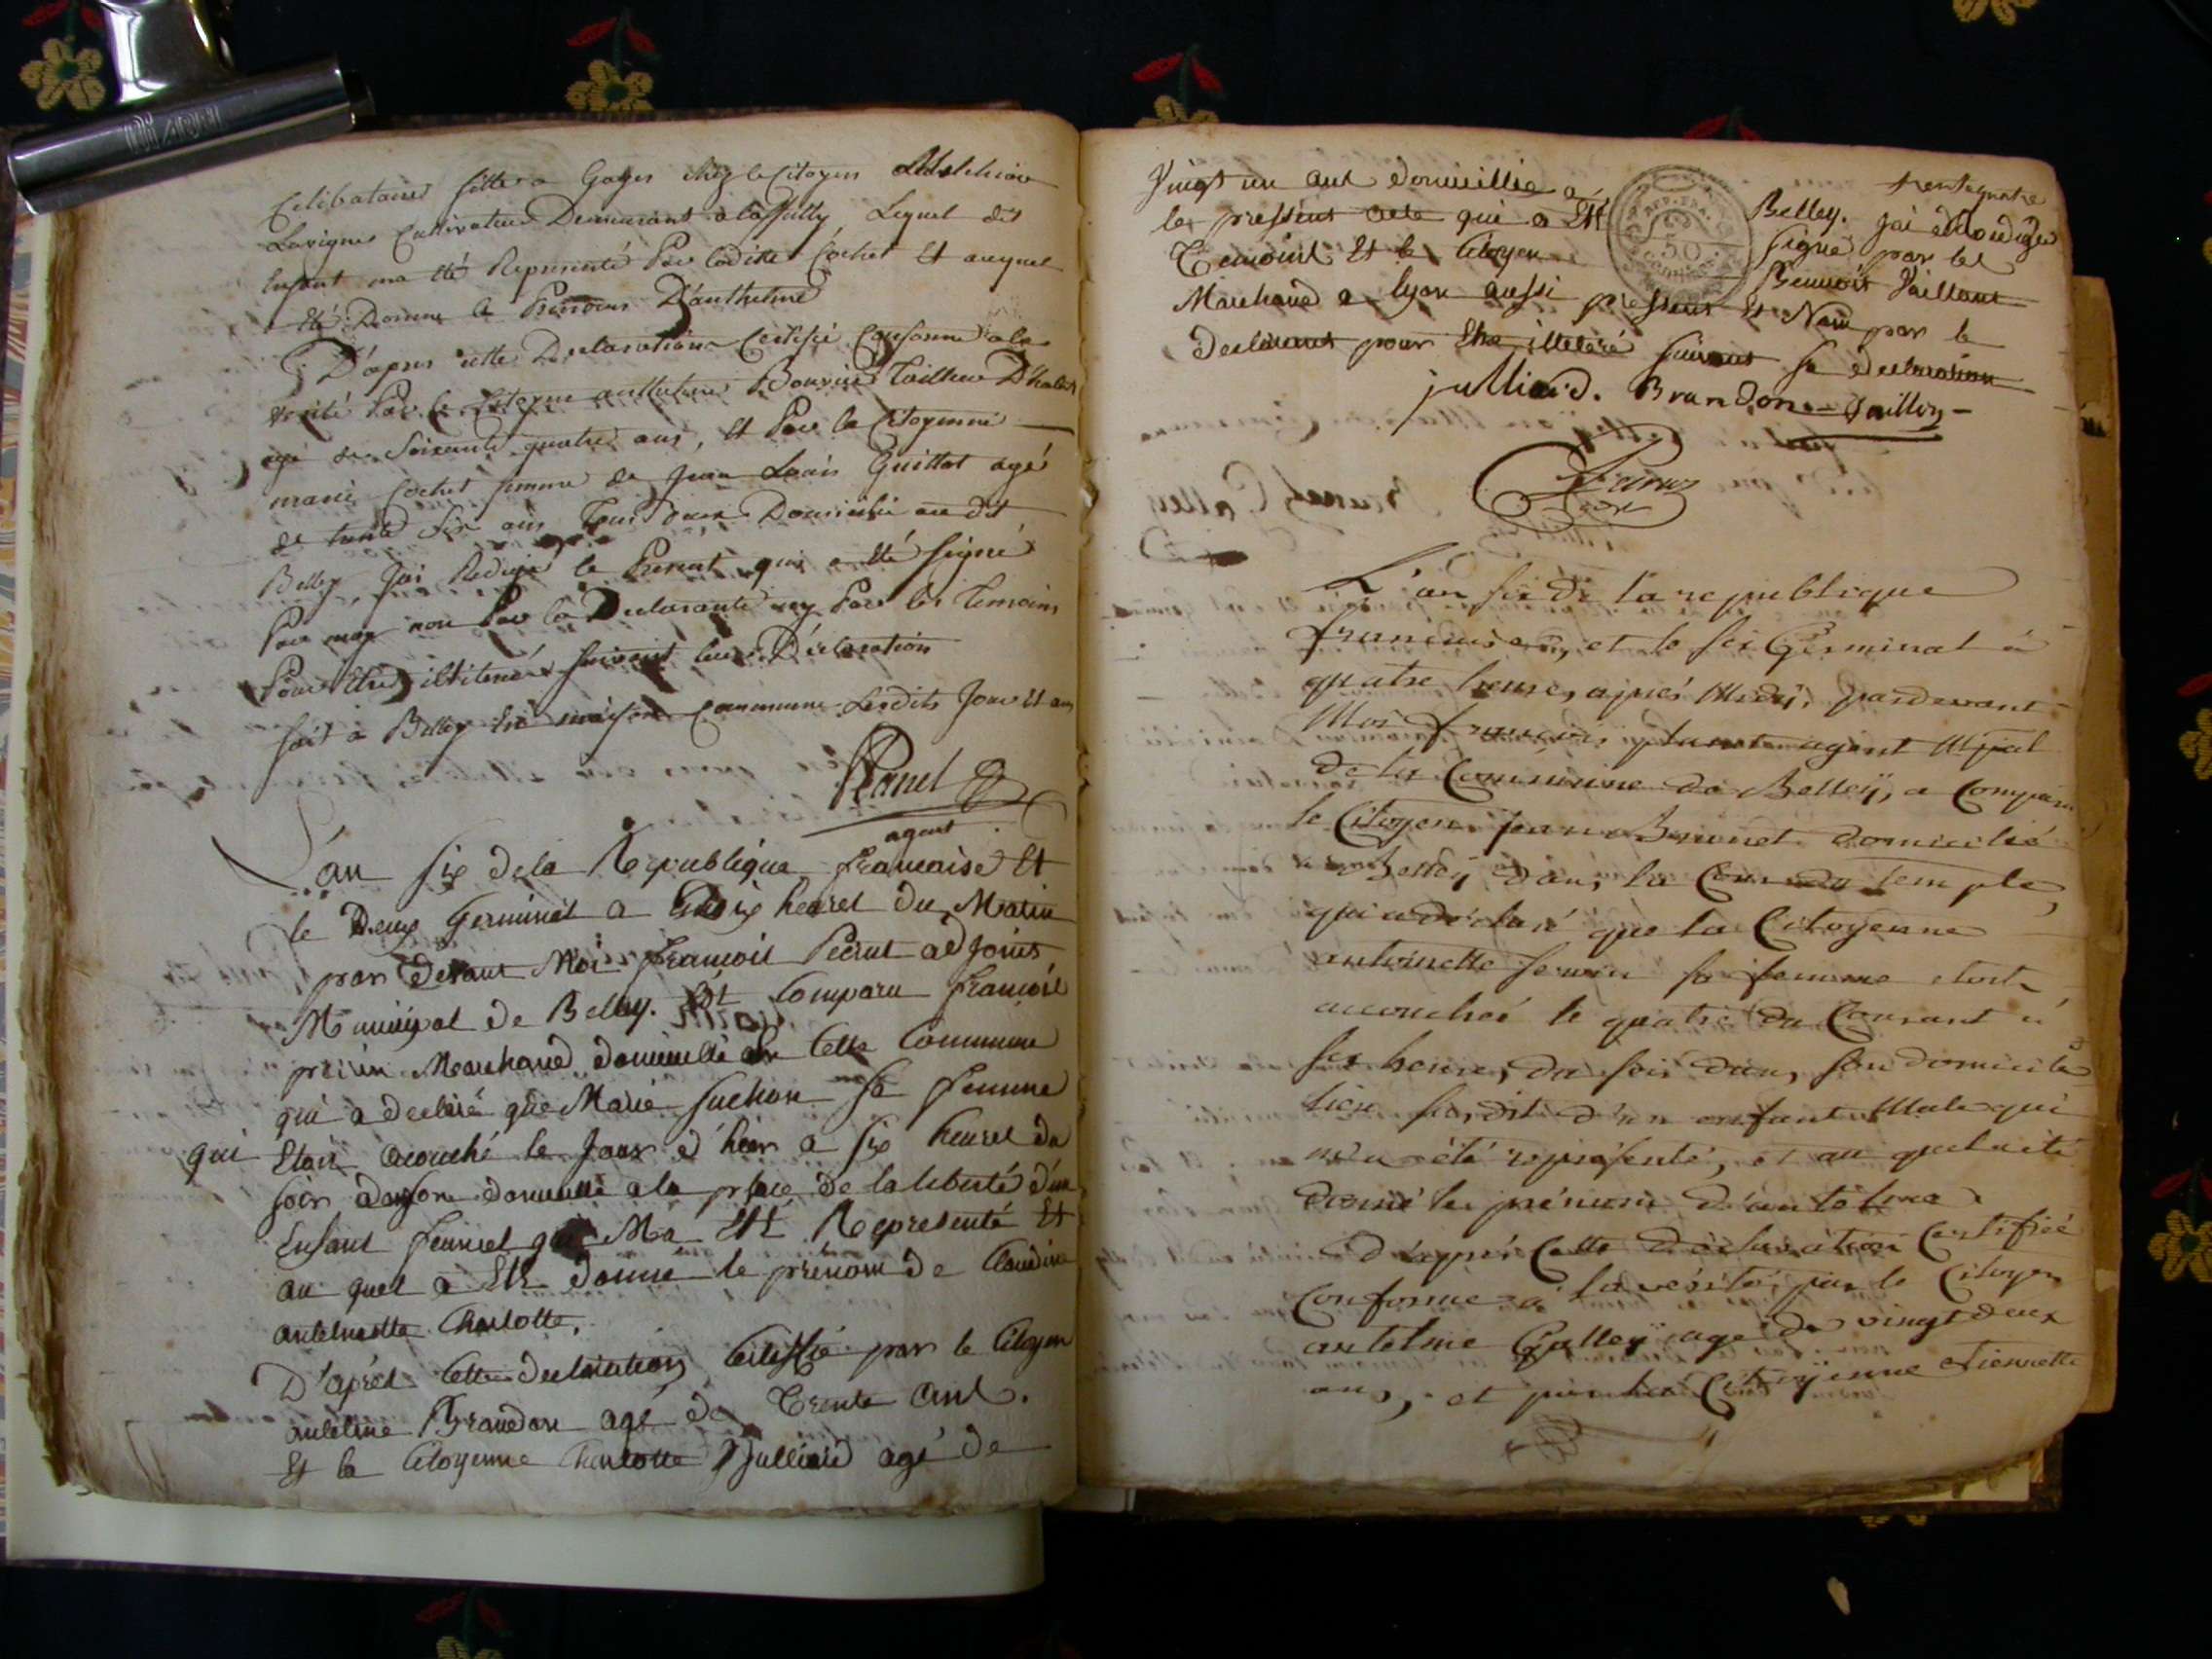 Celibataire fille a Gages chez le Citoyen
Lavigne Cultivateur Demeurant a la Lequel dit
Enfant ma été Représenté Par ladite Cochet Et auquel
été Donné le Prénom D'anthelme
D'apres cette Declaration Certifié Conforme a la
verité Par le Citoyen anthelme Bouvier Tailleur D'habit
agé de Soixante quatre ans, Et Par la Citoyenne
marie Cochet femme de Jean Louis Guillot agé
de trente Six ans Tous Deux Domicilié au dit
Belley, Jai Redigé le Present qui a été Signé
Par moy non Par la Declarante ny Par les Temoins
Pour Etre illitéré suivant leur Déclaration
fait a Belley En maison commune Lesdits Jour Et an
Planet
agent
L'an six dela Republique francaise Et
le Deux Germinal a heures du Matin
par Devant Moi francois Peerut adjoint
Municipal de Belley. Est Comparu francois
Marchand domicillié de Cette Commune
qui a declaré que Marie Suchon Sa femme
qui Etait acouché le Jour d'hier a six heures du
soir dans son domicille a la place de la liberté d'un
Enfant femiel qui Ma Eté Representé Et
au quel a Eté donné le prenom de Claudine
antelmette Charlotte.
D'aprés Cette declaration Certiffié par le Citoyen
antelme Brandon agé de Trente ans.
Et la Citoyenne Charlotte Julliard agé de
trentequatre
Vingt un ans domicillié a Belley. Jai Redigé
le pressent acte qui a Eté Signé par les
Temoins Et le Citoyen Bennoit Vaillant
Marchand a lyon aussi pressent Et Non par le
declarent pour Etre illetéré suivant sa declaration
julliard. Brandon Vaillin
L'an six de la republique
francaise, et le six Germinal à
quatre heures aprés Midy, pardevant
Moi francois planet agent Mpal
de la Commune de Belleÿ, a Comparu
le Citoyen Jean Brunet domicilié
a Belleÿ dans la Cour du temple,
qui a déclaré que la Citoyenne
antoinette sa femme etoit
accouchée le quatre du Courant à
six heures du soir dans son domicile
lieu susdit d'un enfant Male qui
m'a été représenté, et au quel a été
donné les prénoms d'antelme
d'aprés cette déclaration Certifiée
Conforme à la vérité, par le Citoyen
antelme Galleÿ agé de vingt deux
ans, et par la Citoÿenne Pierrette